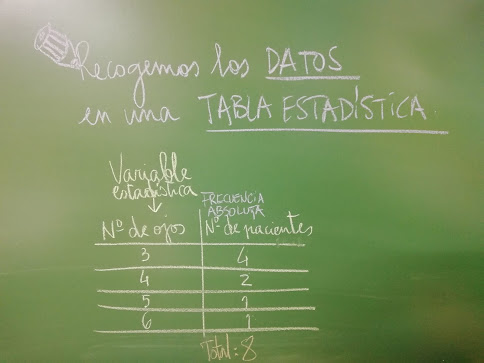 Recogemos los DATOS
en una TABLA ESTADÍSTICA
Variable
estadística
FRECUENCIA
ABSOLUTA
Nº de ojos Nº de pacientes
3 4
4 2
5 1
6 1
Total: 8